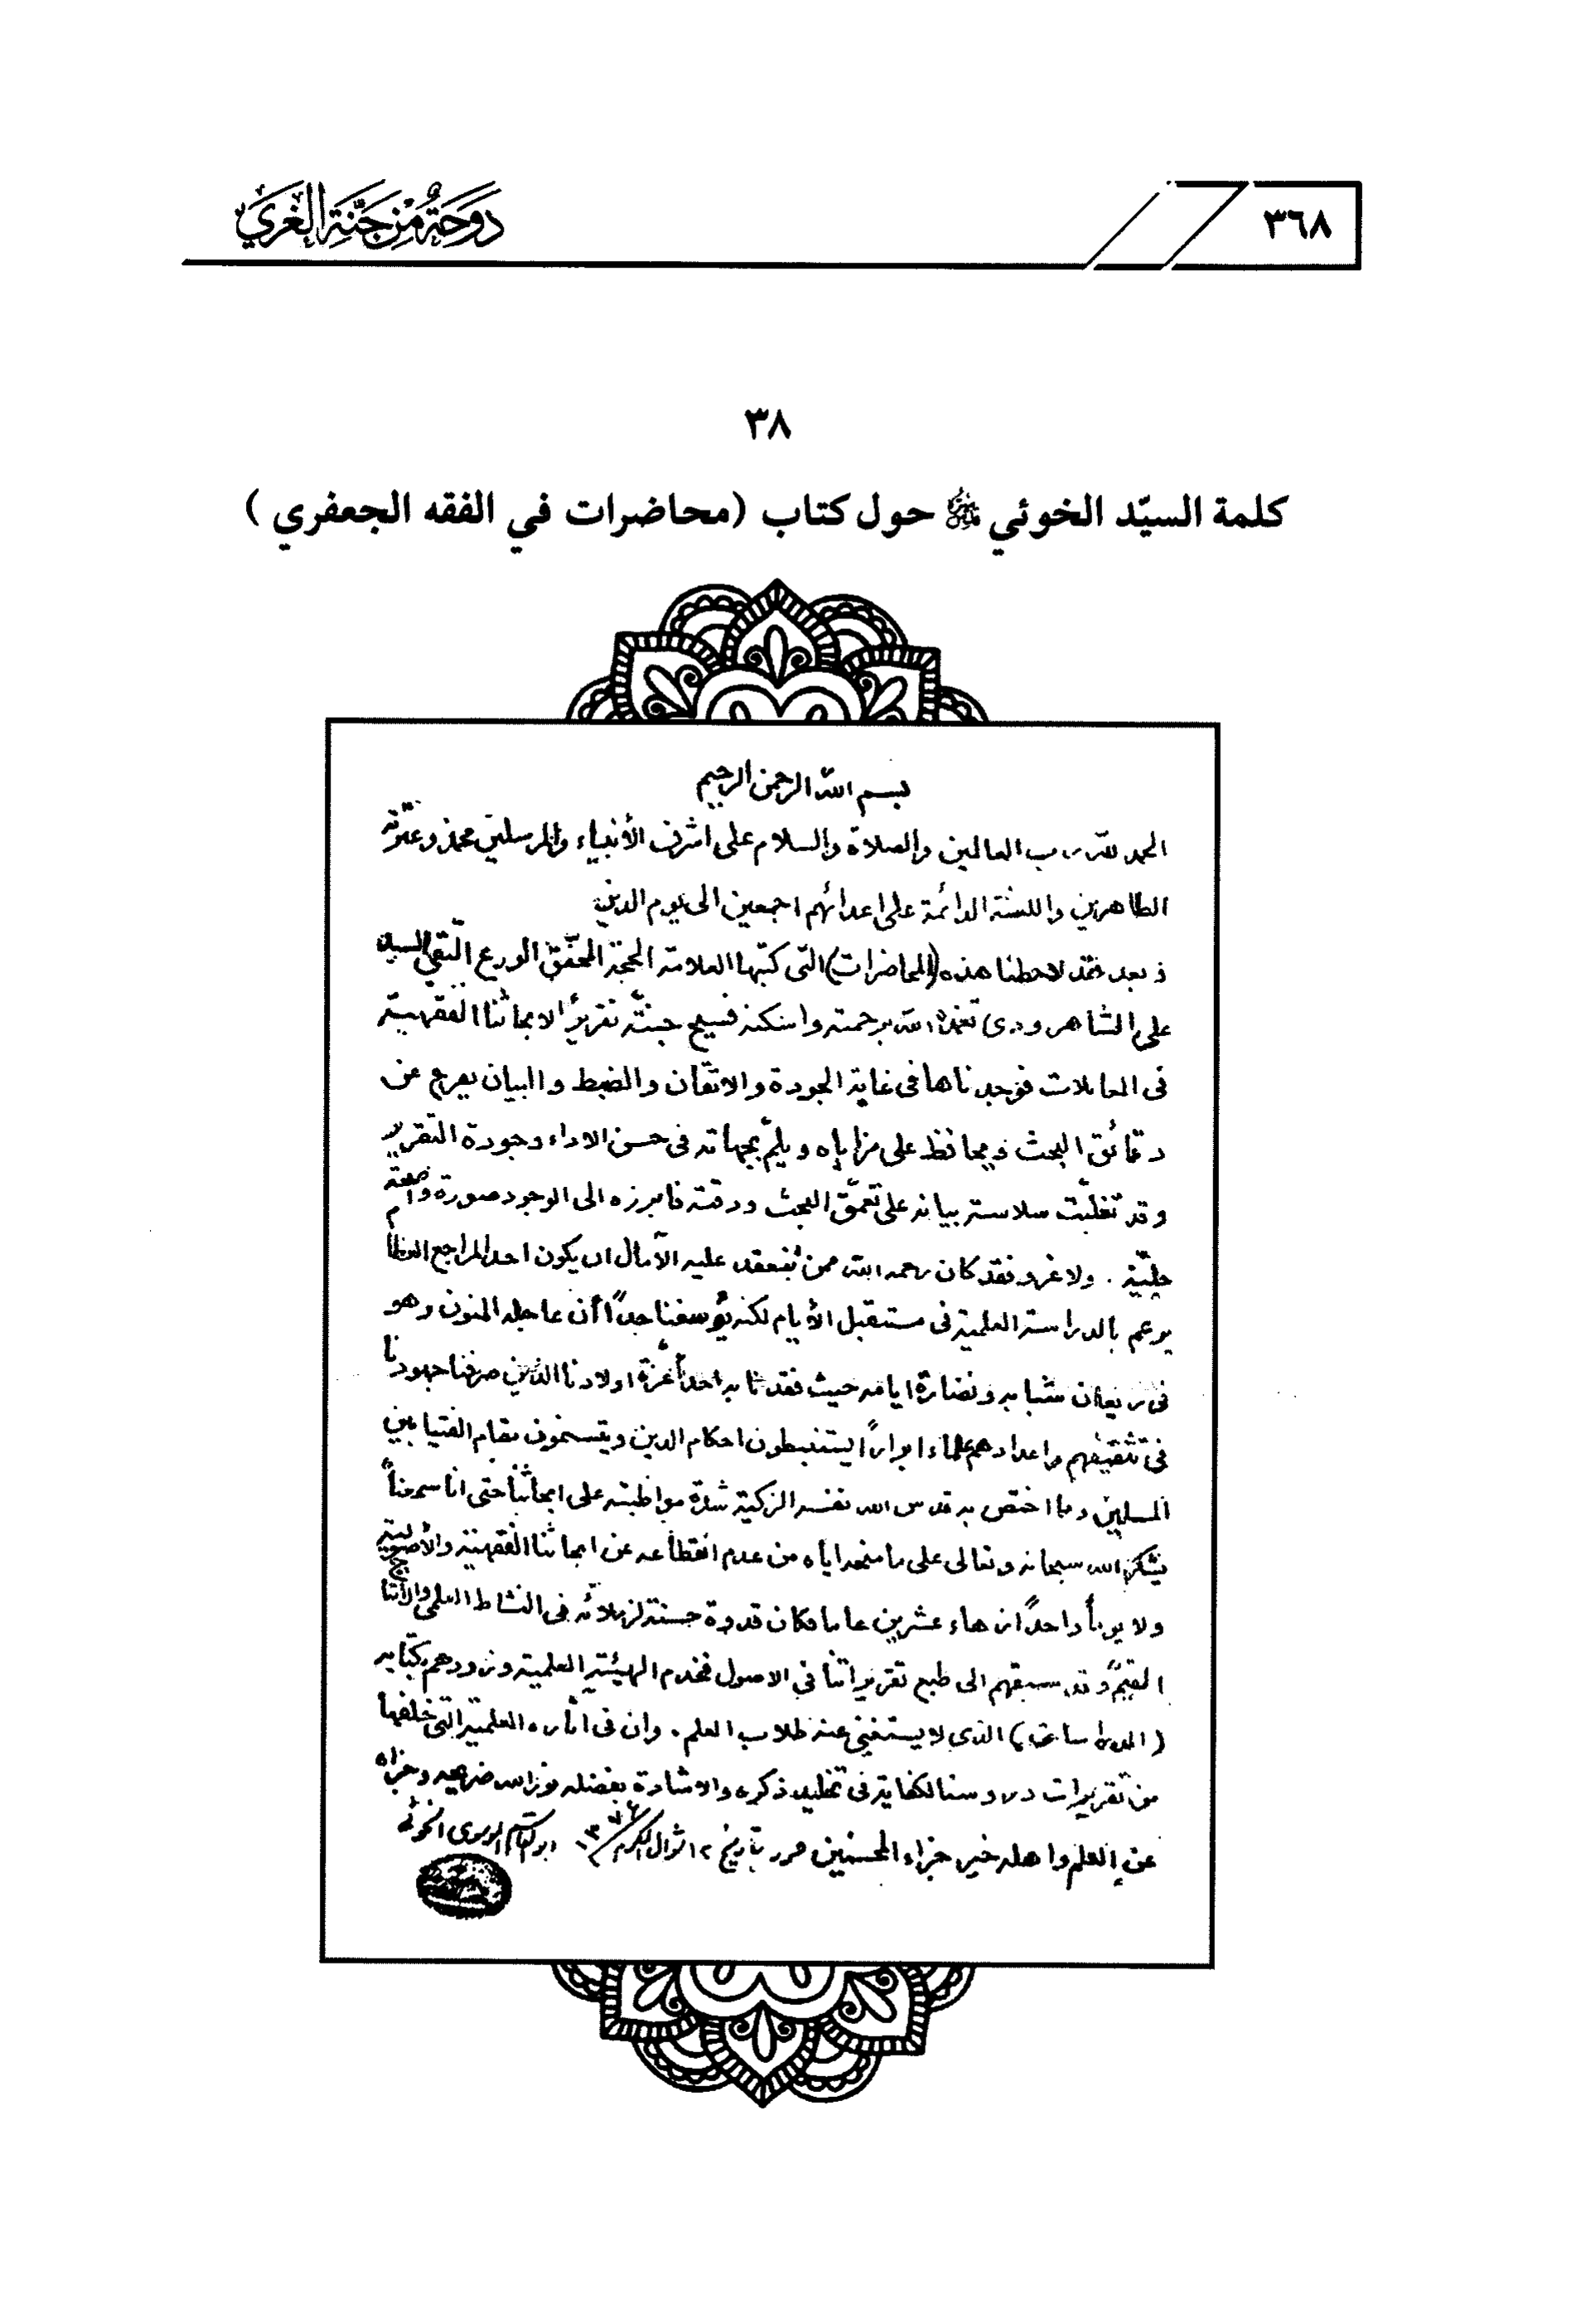 ٣٦٨
دَوحَةٌ مِن جَنَّةِ الغَريّ
٣٨
كلمة السيّد الخوئي حول كتاب (محاضرات في الفقه الجعفري )
بسم الله الرحمن الرحيم
الحمد لله رب العالمين والصلاة والسلام على اشرف الأنبياء والمرسلين محمد وعترته
الطاهرين واللعنة الدائمة على اعدائهم اجمعين الى يوم الدين
و بعد فقد لاحظنا هذه (المحاضرات) التى كتبها العلامة الحجة المحقق الورع التقي السيد
على الشاهرودى تغمده الله برحمته واسكنه فسيح جنته تقريراً لابحاثنا الفقهية
فى المعاملات فوجدناها فى غاية الجودة والاتقان والضبط والبيان يعرج عن
دقائق البحث ويحافظ على مزاياه ويلمّ بجهاته فى حسن الاداء وجودة التقرير
وقد تغلبت سلاسة بيانه على تعمق البحث ودقته فابرزه الى الوجود صورة واضحة
جليّة . ولا غرو فقد كان رحمه الله ممن تنعقد عليه الآمال ان يكون احد المراجع العظام
يوعم بالدراسة العلمية فى مستقبل الأيام لكنه يؤسفنا جداً أن عاجله المنون وهو
فى ريعان شبابه ونضارة ايامه حيث فقدنا به احد أعزة اولادنا الذين صرفنا جهودنا
فى تثقيفهم واعدادهم علماء ابراراً يستنبطون احكام الدين ويتسنمون مقام الفتيا بين
المسلمين ومما اختص به قدس الله نفسه الزكية شدة مواظبته على ابحاثنا حتى انا سمعناً
يشكر الله سبحانه وتعالى على ما منحه اياه من عدم انقطاعه عن ابحاثنا الفقهية والأصولية
ولا يوماً واحداً زهاء عشرين عاما فكان قدوة حسنة لزملائه فى النشاط العلمى والانتاج
القيّم وقد سبقهم الى طبع تقريراتنا فى الاصول فخدم الهيئة العلمية وزودهم بكتابه
(الدراسات) الذى لا يستغنى عنه طلاب العلم . وان فى آثاره العلمية التى خلفها
من تقريرات دروسنا لكفاية فى تخليد ذكره والاشادة بفضله نور الله ضريحه وجزاه
عن العلم واهله خير جزاء المحسنين حرر بتاريخ ١٢ شوال المكرم ١٣٧٦ ابو القاسم الموسوى الخوئى